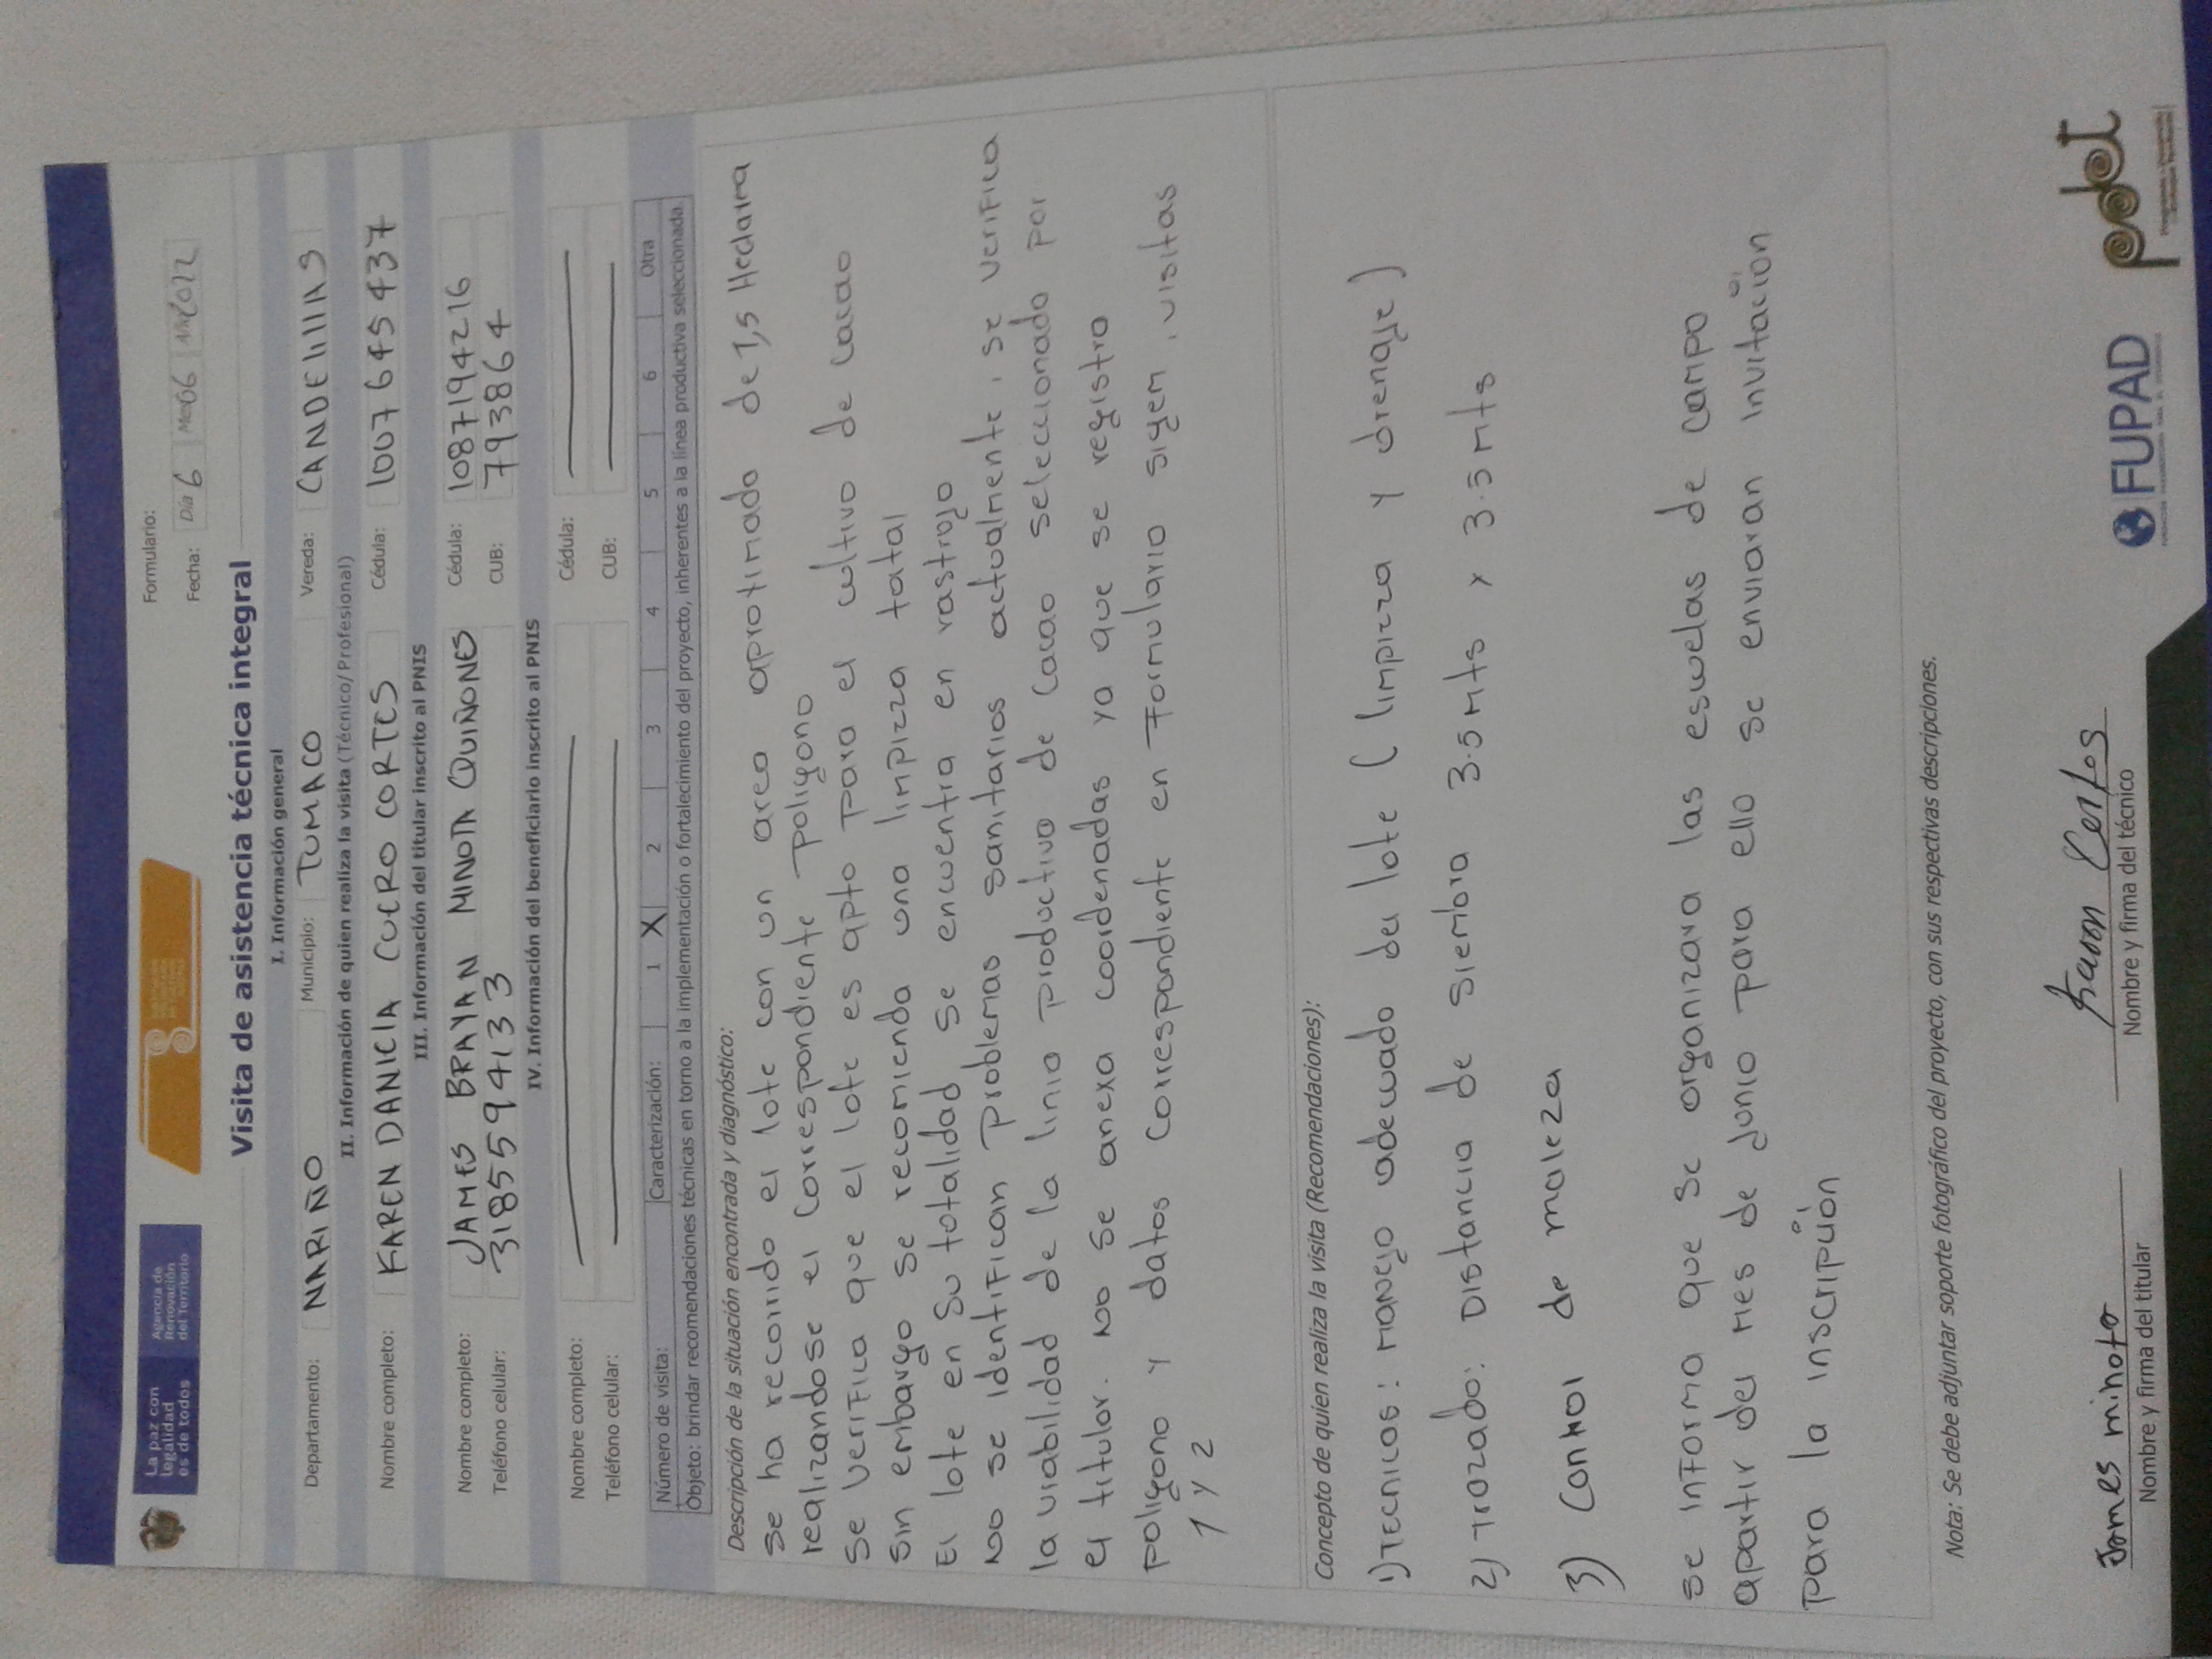 La paz con
legalidad
es de todos
Agencia de
Renovación
del Territorio
Formulario:
Fecha: Día 6 Mes 06 2022
Visita de asistencia técnica integral
I. Información general
Departamento: NARIÑO Municipio: TUMACO Vereda: CANDElIllAS
II. Información de quien realiza la visita (Técnico/ Profesional)
Nombre completo: KAREN DANICIA CUERO CORTES Cédula: 1007645437
III. Información del titular inscrito al PNIS
Nombre completo: JAMES BRAYAN MINOTA QUIÑONES Cédula: 1087194216
Teléfono celular: 3185594133 CUB: 793864
IV. Información del beneficiario inscrito al PNIS
Nombre completo: Cédula:
Teléfono celular: CUB:
Número de visita: Caracterización: 1 X 2 3 4 5 6 Otra
Objeto: brindar recomendaciones técnicas en torno a la implementación o fortalecimiento del proyecto, inherentes a la línea productiva seleccionada.
Descripción de la situación encontrada y diagnóstico:
se ha recorrido el lote con un area aprotimado de 1,5 Hectarea
realizandose el correspondiente poligono
Se verifica que el lote es apto para el cultivo de cacao
Sin embargo se recomienda una limpizza total
El lote en su totalidad se encuentra en rastrojo
No se identifican problemas sanitarios actualmente, se verifica
la viabilidad de la linia productivo de cacao seleccionado por
el titular. No se anexa coordenadas ya que se registro
poligono y datos correspondiente en Formulario sigem, visitas
1 y 2
Concepto de quien realiza la visita (Recomendaciones):
1) Tecnicos: Manejo adecuado del lote ( limpizza y drenaje)
2) Trozado: Distancia de siembra 3.5 mts x 3.5 mts
3) Control de maleza
se informa que se organizara las escuelas de campo
apartir del mes de Junio para ello se enviaran invitación
para la inscripción
Nota: Se debe adjuntar soporte fotográfico del proyecto, con sus respectivas descripciones.
James minota
Nombre y firma del titular
Karen Cortes
Nombre y firma del técnico
FUPAD
pdet